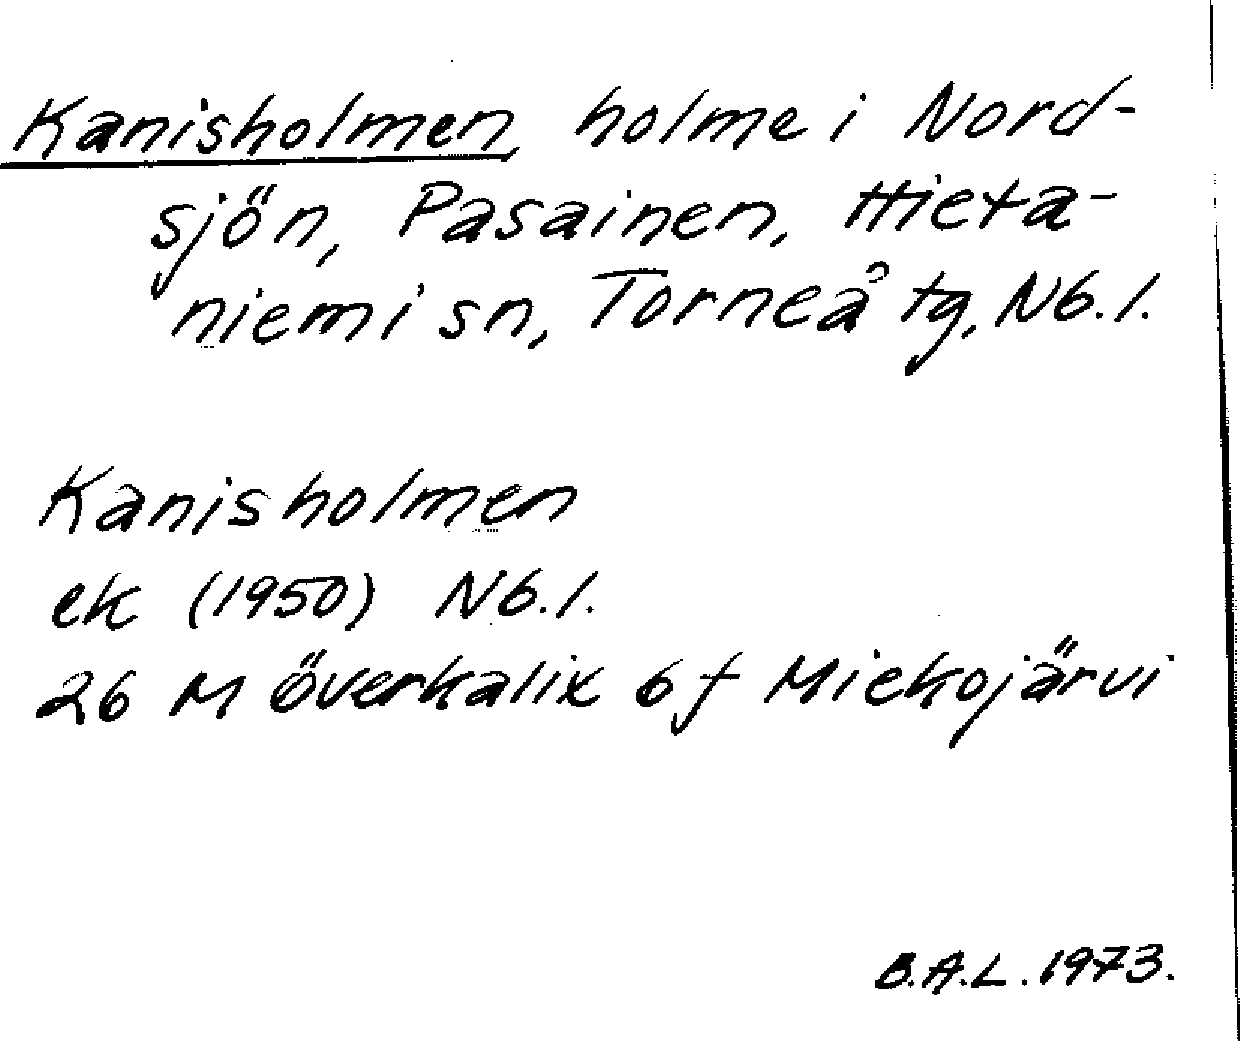 Kanisholmen, holme i Nord-
sjön, Pasainen, Hieta-
niemi sn, Torneå tg, Nb.l.
Kanisholmen
ek (1950) Nb.l.
26 M Överkalix 6 f Miekojärvi
B.A.L. 1973.